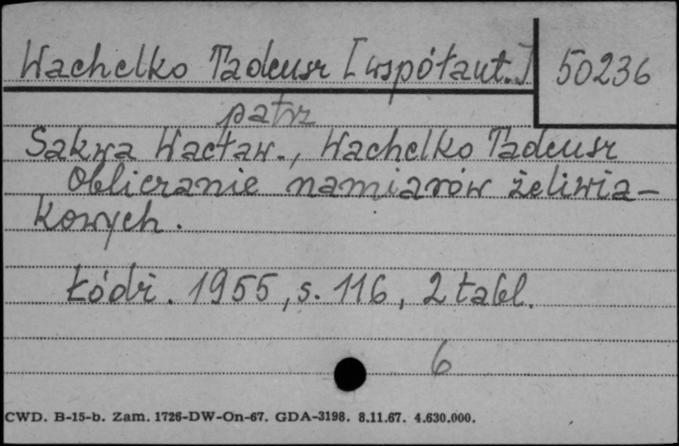 Wachelko Tadeusz [współaut.] 50236
patrz
Sakwa Wacław., Wachelko Tadeusz
Obliczanie namiarów żeliwia-
kowych.
Łódź. 1955, s. 116, 2 tabl.
6
CWD. B-15-b. Zam. 1726-DW-On-67. GDA-3198. 8.11.67. 4.630.000.